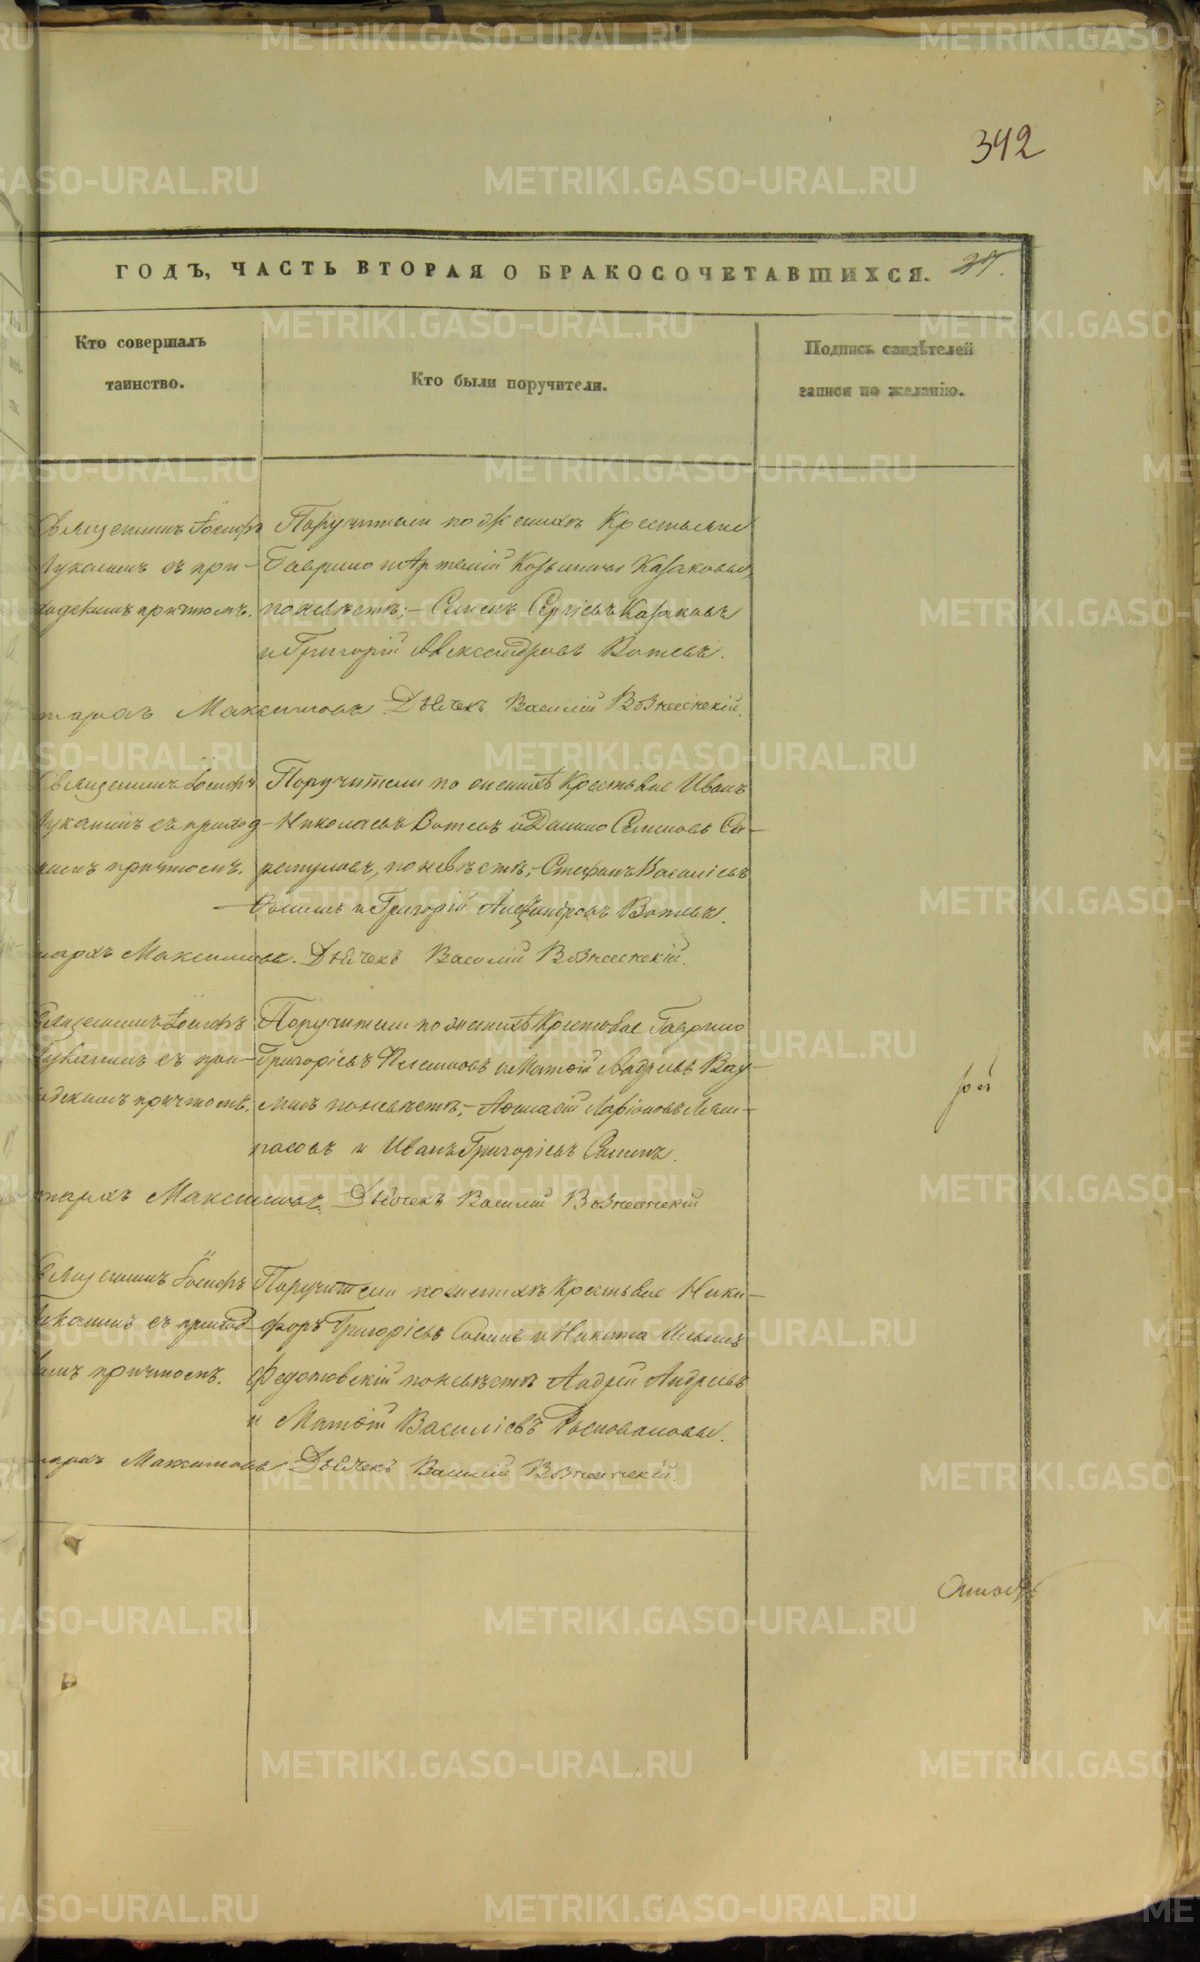 342
ГОДЪ, ЧАСТЬ ВТОРАЯ О БРАКОСОЧЕТАВШИХСЯ. 37.
Кто совершалъ
таинство.
Кто были поручители.
Подпись свидѣтелей
записи по желанію.
Священникъ Іосифъ
Лукашинъ съ при-
ходскимъ причтомъ.
Поручители по женихѣ Крестьяне
Гаврило и Артемій Козьмины Казаковы
по невѣстѣ;- Семенъ Сергіевъ Казаковъ
и Григорій Александровъ Вотевъ.
Максимовъ Дьячекъ Василій Вознесенскій.
Священникъ Іосифъ
Лукашинъ съ приход-
скимъ причтомъ.
Поручители по женихѣ Крестьяне Иванъ
Николаевъ Вотевъ и Данило Семеновъ Са-
рапуловъ, по невѣстѣ;- Стефанъ Василіевъ
Сошинъ и Григорій Александровъ Вотевъ.
Максимовъ. Дьячекъ Василій Вознесенскій.
Священникъ Іосифъ
Лукашинъ съ при-
ходскимъ причтомъ.
Поручители по женихѣ Крестьяне Гаврило
Григорієвъ и Матѳій Андреевъ
по невѣстѣ;- Ларіоновъ
и Иванъ Григоріевъ Сошинъ.
Максимовъ. Дьячекъ Василій Вознесенскій
Священникъ Іосифъ
Лукашинъ съ приход-
скимъ причтомъ.
Поручители по женихѣ Крестьяне Ники-
форъ Григоріевъ Сошинъ и Никита Ильинъ
Федотовскій по невѣстѣ Андрей Андреевъ
и Матѳій Василіевъ
Максимовъ Дьячекъ Василій Вознесенскій.
METRIKI.GASO-URAL.RU